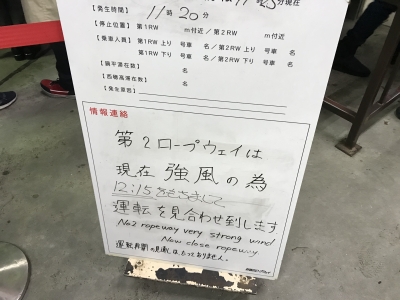 現在
【発生時間】 11時20分
【停止位置】 第1RW m付近／第2RW m付近
【乗車人員】 第1RW 上り 号車 名／第2RW 上り 号車 名
第1RW 下り 号車 名／第2RW 下り 号車 名
名
名
情報連絡
第2ロープウェイは
現在 強風の為
12:15をもちまして
運転を見合わせ到します
No2 ropeway very strong wind
Now close ropeway
運転再開の見通しはたっておりません。